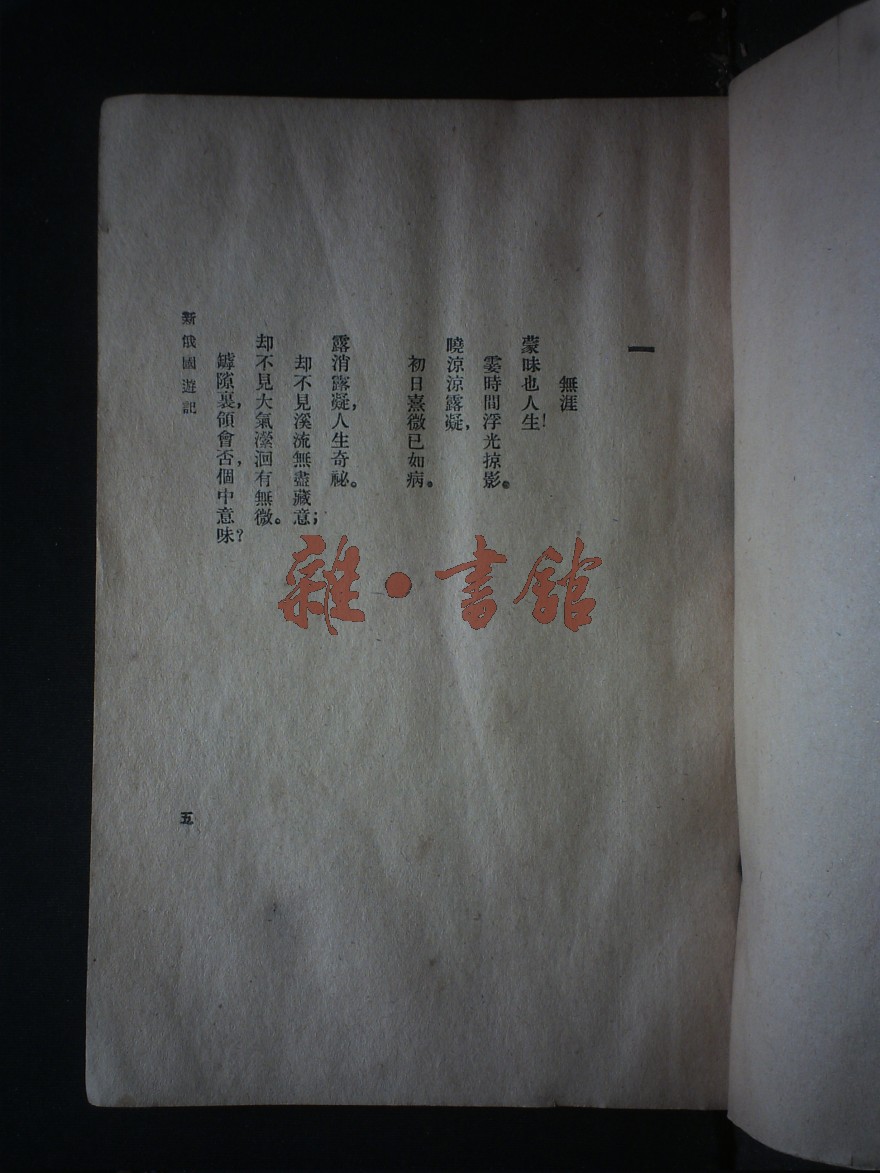 一
無涯
蒙昧也人生!
霎時間浮光掠影。
曉涼涼露凝,
初日熹微已如病。
露消露凝,人生奇祕。
却不見溪流無盡藏意;
却不見大氣瀠洄有無微。
罅隙裏,領會否,個中意味?
新俄國遊記
五
雜·書館